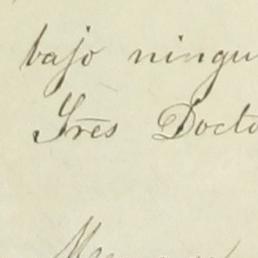 bajo ningu
Sres Docto